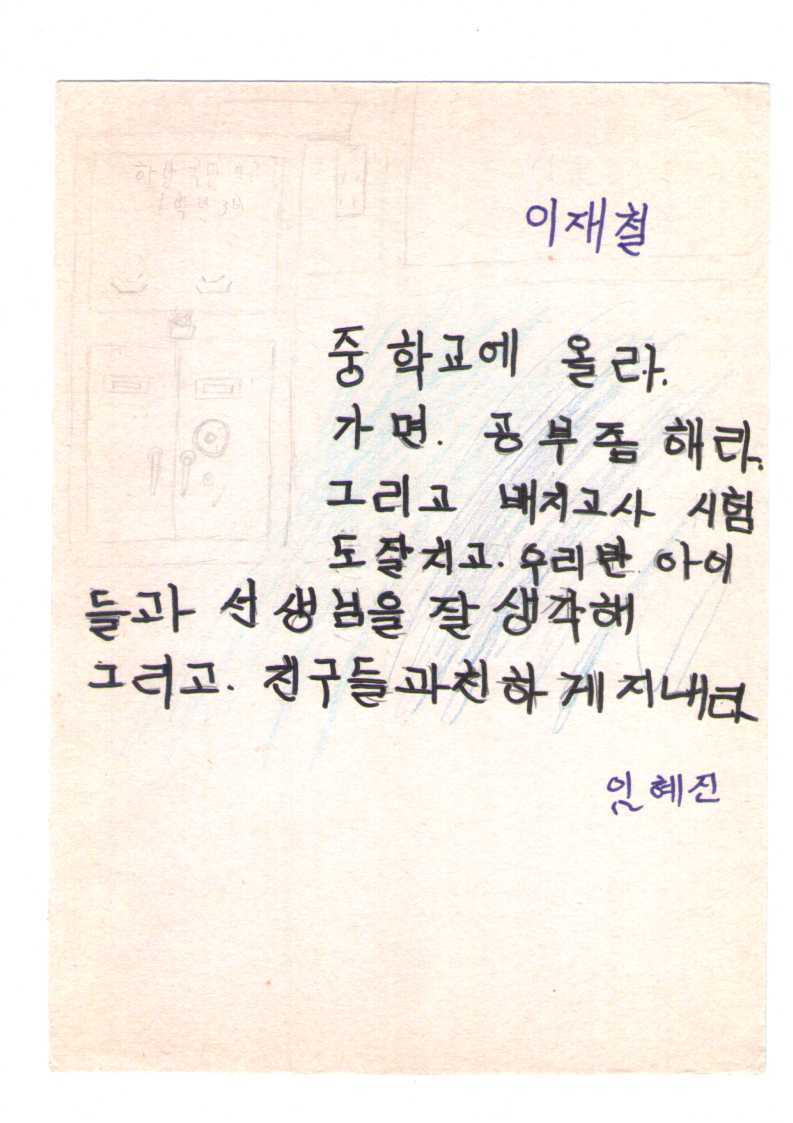 이재철
중학교에 올라.
가면. 공부좀 해라.
그리고 배치고사 시험
도잘치고. 우리반 아이
들과 선생님을 잘 생각해
그리고. 친구들과친하게지내라
임혜진